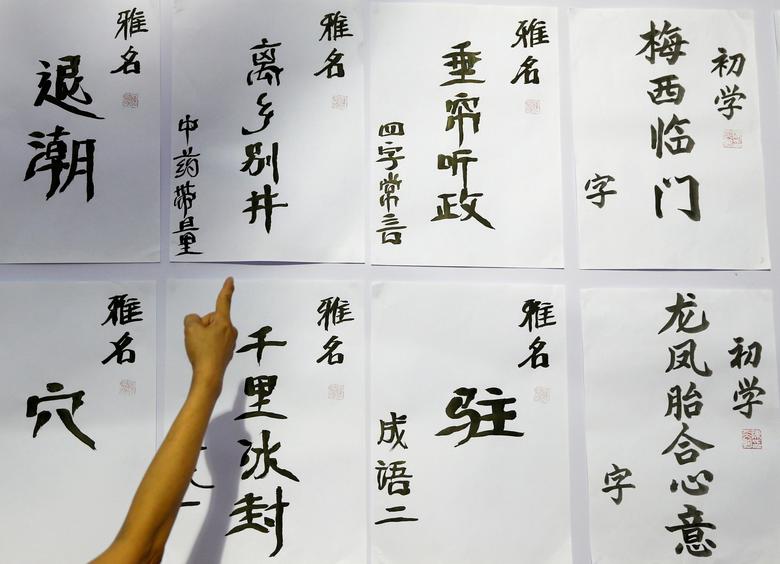 雅名
退潮
雅名
离乡别井
中药带量
雅名
垂帘听政
四字常言
初学
梅西临门
字
雅名
穴
雅名
千里冰封
雅名
驻
成语二
初学
龙凤胎合心意
字